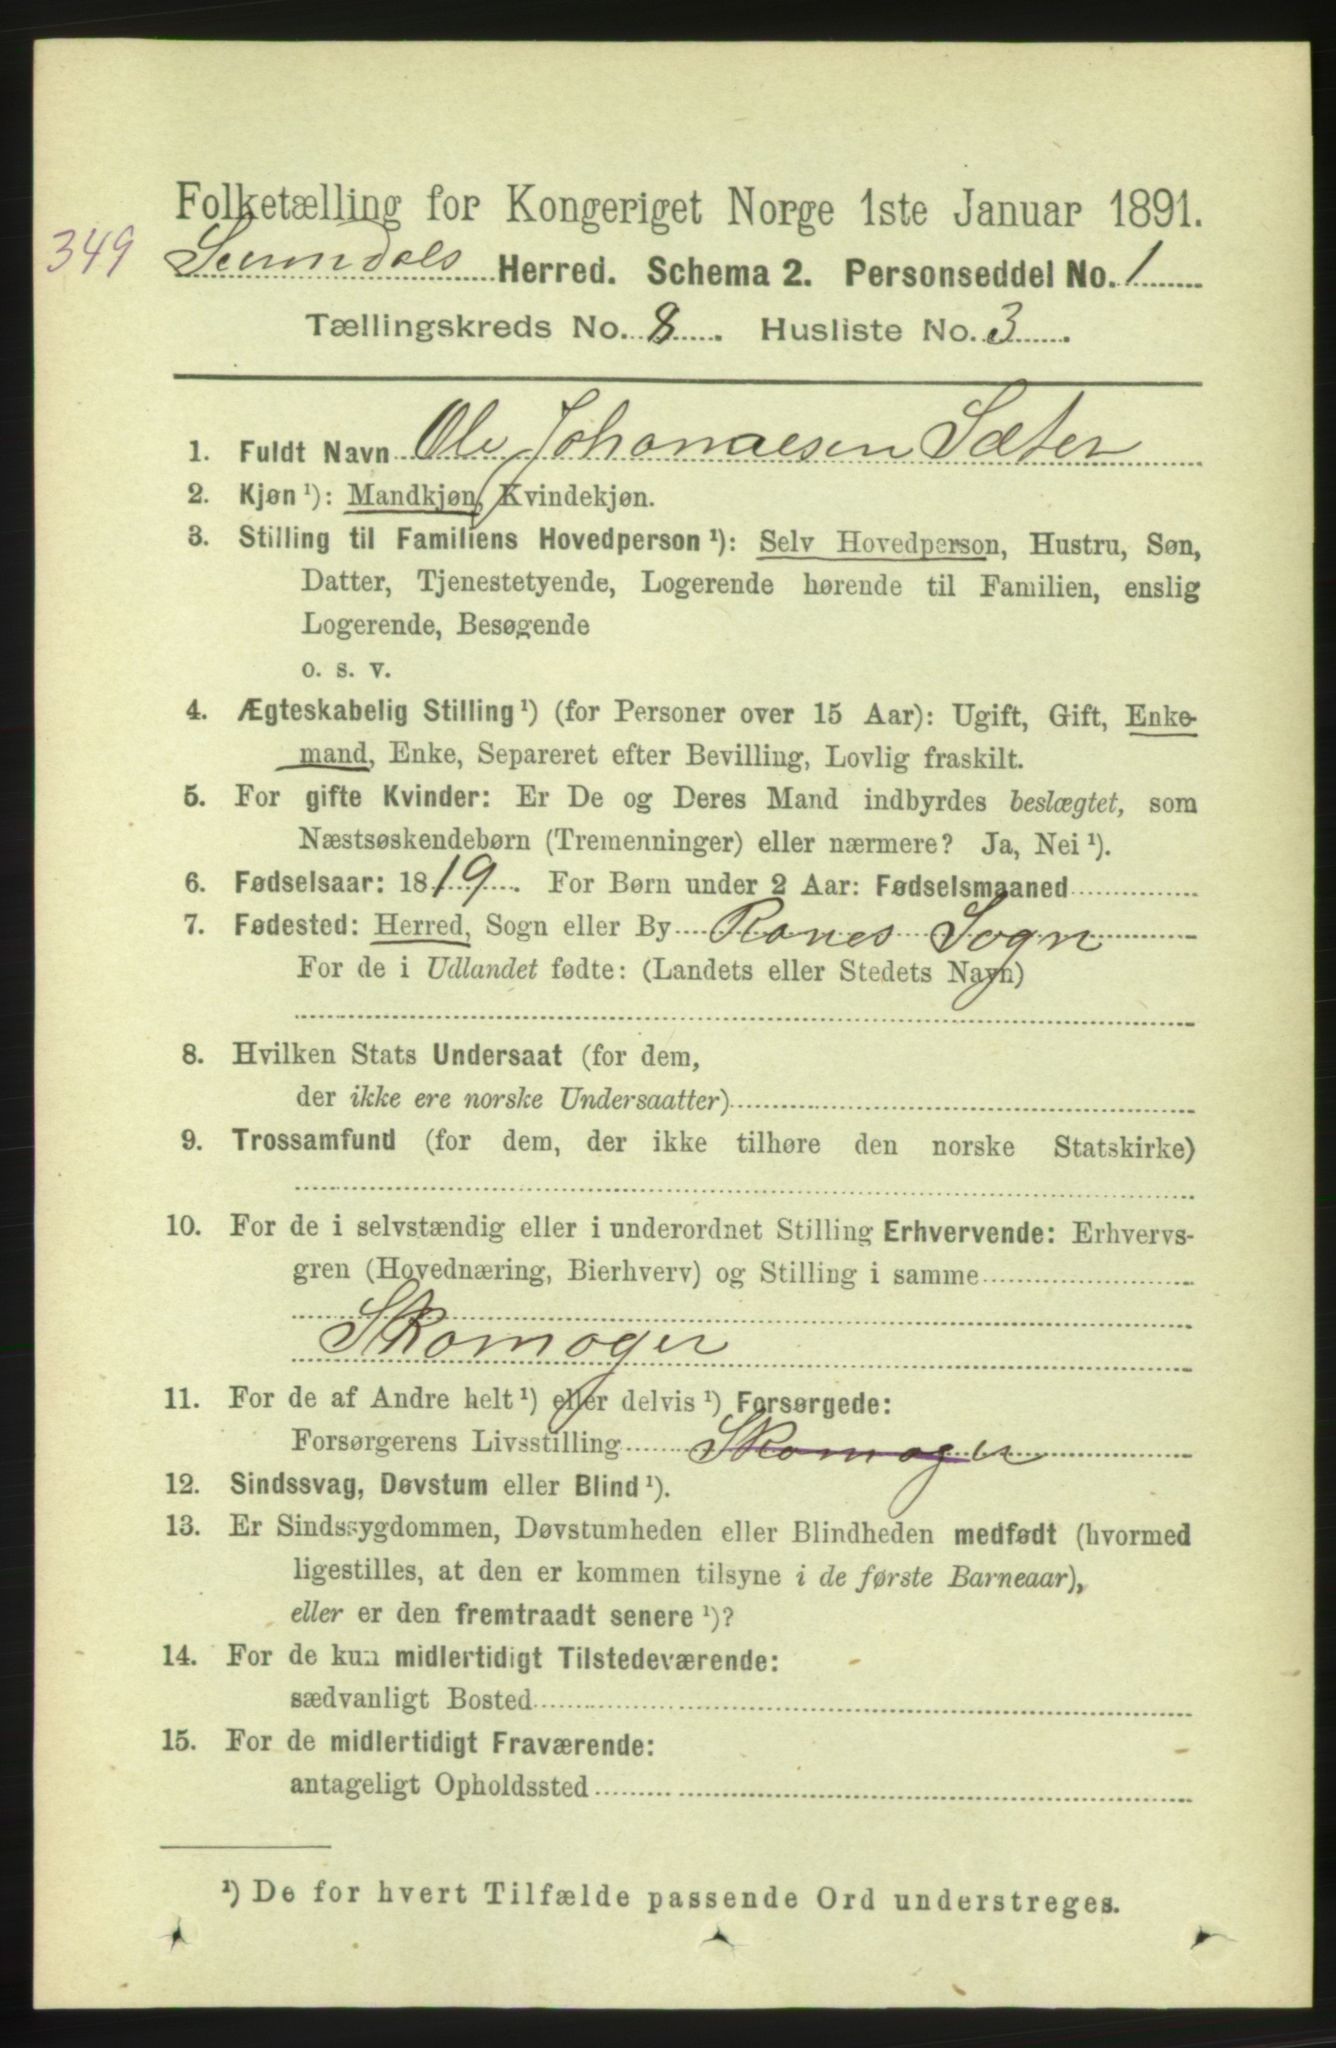 Folketælling for Kongeriget Norge 1ste Januar 1891.
349
Sunndals Herred. Schema 2. Personseddel No. 1
Tællingskreds No. 8. Husliste No. 3.
1. Fuldt Navn Ole Johannesen Sæter
2. Kjøn ¹): Mandkjøn, Kvindekjøn.
3. Stilling til Familiens Hovedperson ¹): Selv Hovedperson, Hustru, Søn,
Datter, Tjenestetyende, Logerende hørende til Familien, enslig
Logerende, Besøgende
o. s. v.
4. Ægteskabelig Stilling ¹) (for Personer over 15 Aar): Ugift, Gift, Enke-
mand, Enke, Separeret efter Bevilling, Lovlig fraskilt.
5. For gifte Kvinder: Er De og Deres Mand indbyrdes beslægtet, som
Næstsøskendebørn (Tremenninger) eller nærmere? Ja, Nei ¹).
6. Fødselsaar: 1819. For Børn under 2 Aar: Fødselsmaaned
7. Fødested: Herred, Sogn eller By Ranes Sogn
For de i Udlandet fødte: (Landets eller Stedets Navn)
8. Hvilken Stats Undersaat (for dem,
der ikke ere norske Undersaatter)
9. Trossamfund (for dem, der ikke tilhøre den norske Statskirke)
10. For de i selvstændig eller i underordnet Stilling Erhvervende: Erhvervs-
gren (Hovednæring, Bierhverv) og Stilling i samme
Skomager
11. For de af Andre helt ¹) eller delvis ¹) Forsørgede:
Forsørgerens Livsstilling Skomager
12. Sindssvag, Døvstum eller Blind ¹).
13. Er Sindssygdommen, Døvstumheden eller Blindheden medfødt (hvormed
ligestilles, at den er kommen tilsyne i de første Barneaar),
eller er den fremtraadt senere ¹)?
14. For de kun midlertidigt Tilstedeværende:
sædvanligt Bosted
15. For de midlertidigt Fraværende:
antageligt Opholdssted
¹) De for hvert Tilfælde passende Ord understreges.